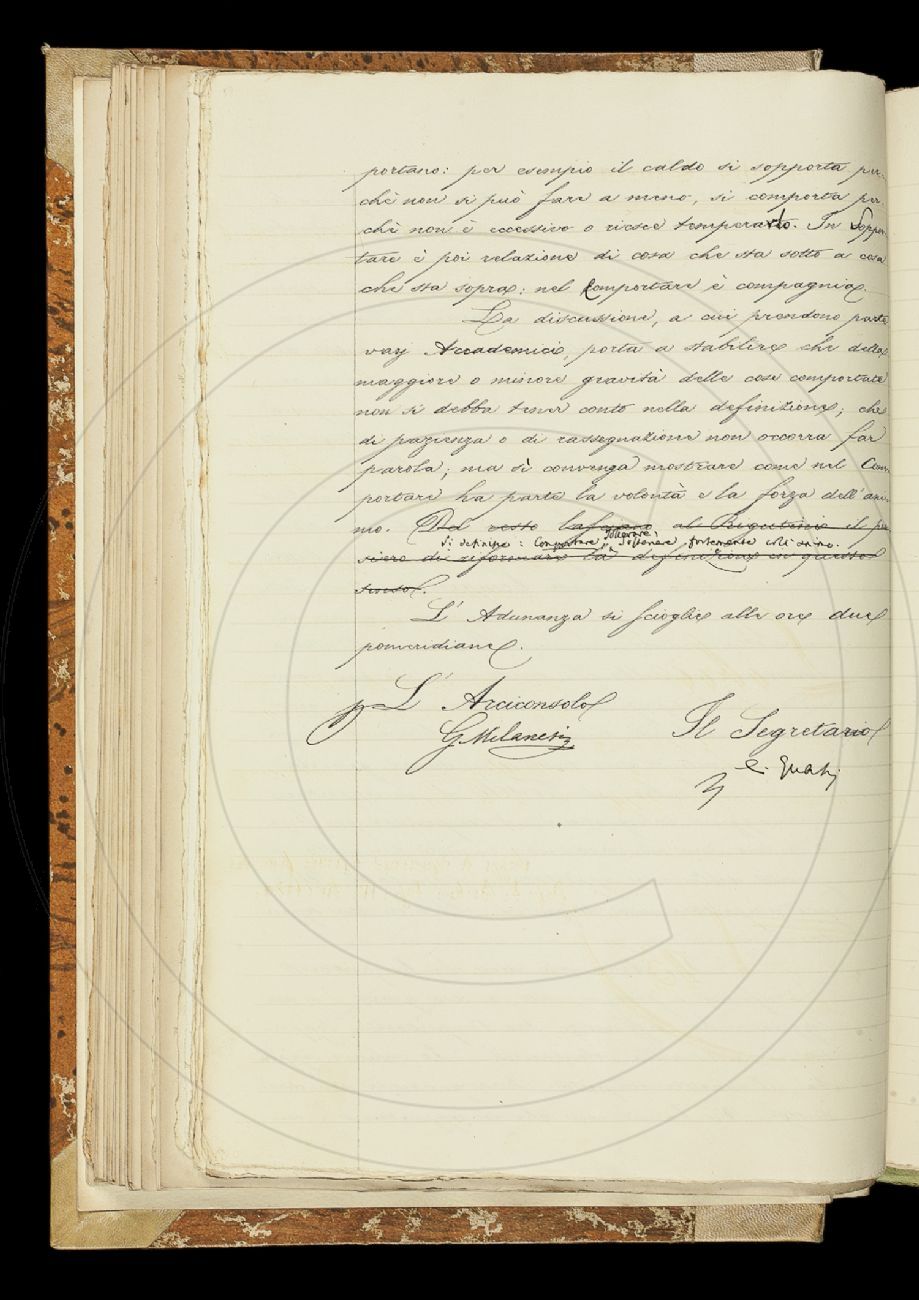 portano: per esempio il caldo si sopporta per-
chè non si può fare a meno, si comporta per-
chè non è eccessivo o riesce temperato. In Soppor-
tare è poi relazione di cosa che sta sotto a cosa
che sta sopra: nel Comportare è compagnia.
La discussione, a cui prendono parte
varj Accademici, porta a stabilire che della
maggiore o minore gravità delle cose comportate
non si debba tener conto nella definizione; che
di pazienza o di rassegnazione non occorra far
parola; ma si convenga mostrare come nel Com-
portare ha parte la volontà e la forza dell'ani-
mo. Del resto lasciano al Rigutini il pen
Tollerare,
Si definisce: Comportare, Sostenere fortemente coll'animo.
siero di riformare la definizione in questo
senso.
L'Adunanza si scioglie alle ore due
pomeridiane.
p L'Arciconsolo
G Milanesi
Il Segretario